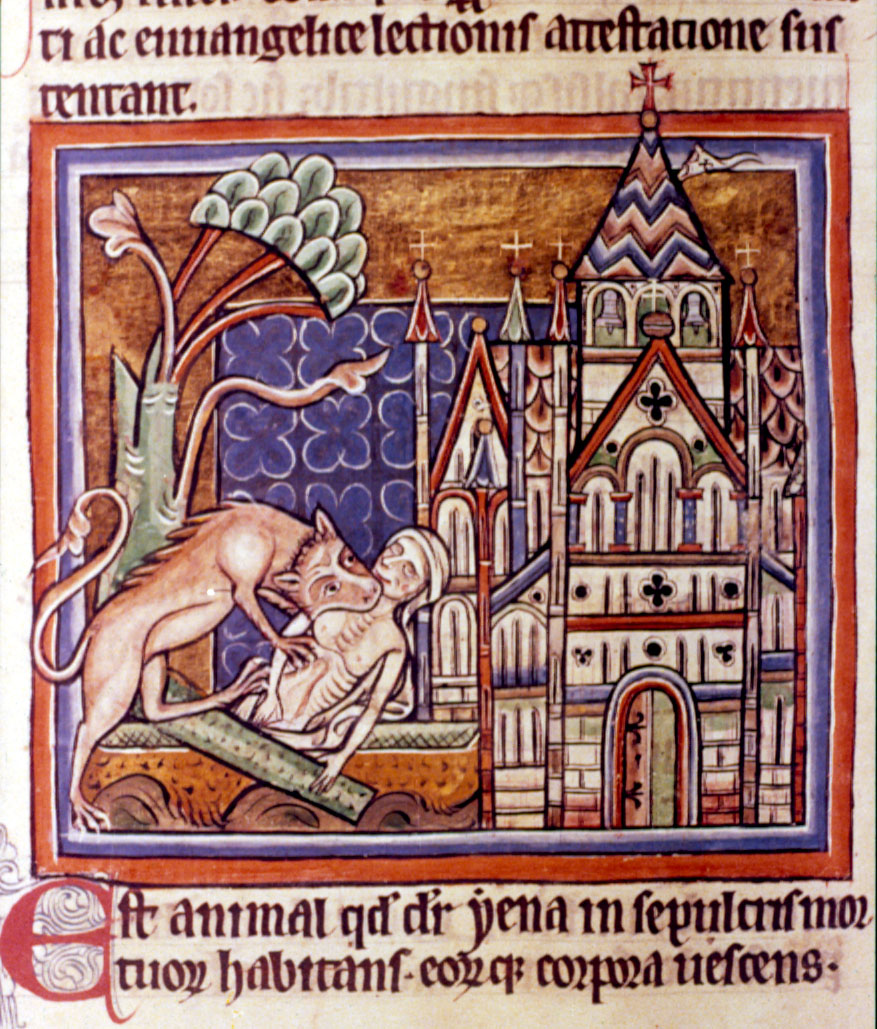 ti ac euuangelice lectionis attestatione sus
tentant.
Est animal qd' dr' yena in sepulcris mor
tuoꝝ habitans. eoꝝq; corpora uescens.